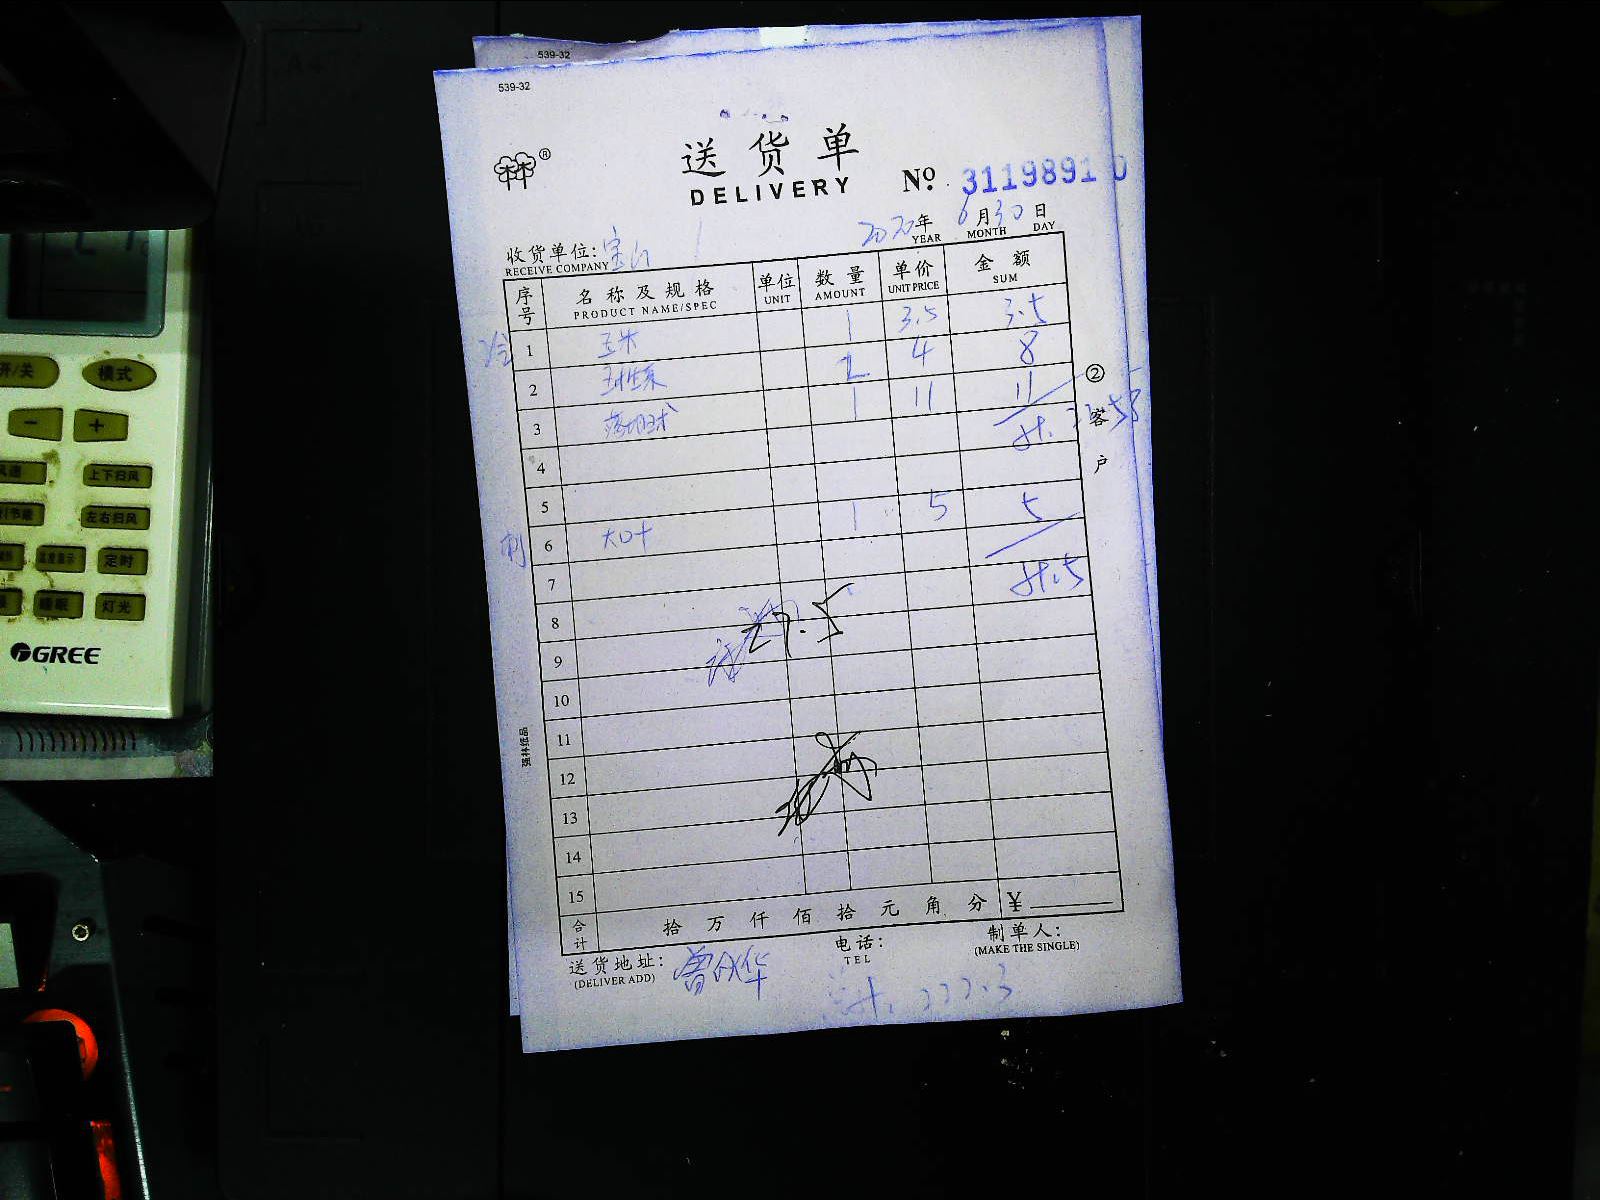 539-32
539-32
送货单
DELIVERY
№ 3119891
2020年 6月30日
YEAR MONTH DAY
收货单位:
RECEIVE COMPANY
序号 名称及规格 单位 数量 单价 金额
PRODUCT NAME/SPEC UNIT AMOUNT UNIT PRICE SUM
1 玉米 1 3.5 3.5
2 2 4 8
3 1 11 11
4
5
6 大叶 1 5 5
7 计.5
8
9
10
11
12
13
14
15
合计 拾 万 仟 佰 拾 元 角 分 ¥
②客户
强林纸品
送货地址: 电话: 制单人:
(DELIVER ADD) TEL (MAKE THE SINGLE)
27.5
开/关
模式
－
＋
风速
上下扫风
左右扫风
定时
睡眠
灯光
GREE